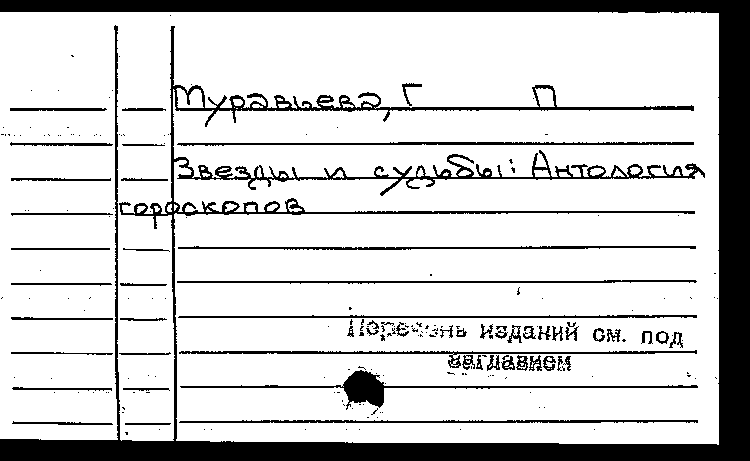 Муравьева, Г П
Звезды и судьбы: Антология
гороскопов
Перечень изданий см. под
заглавием